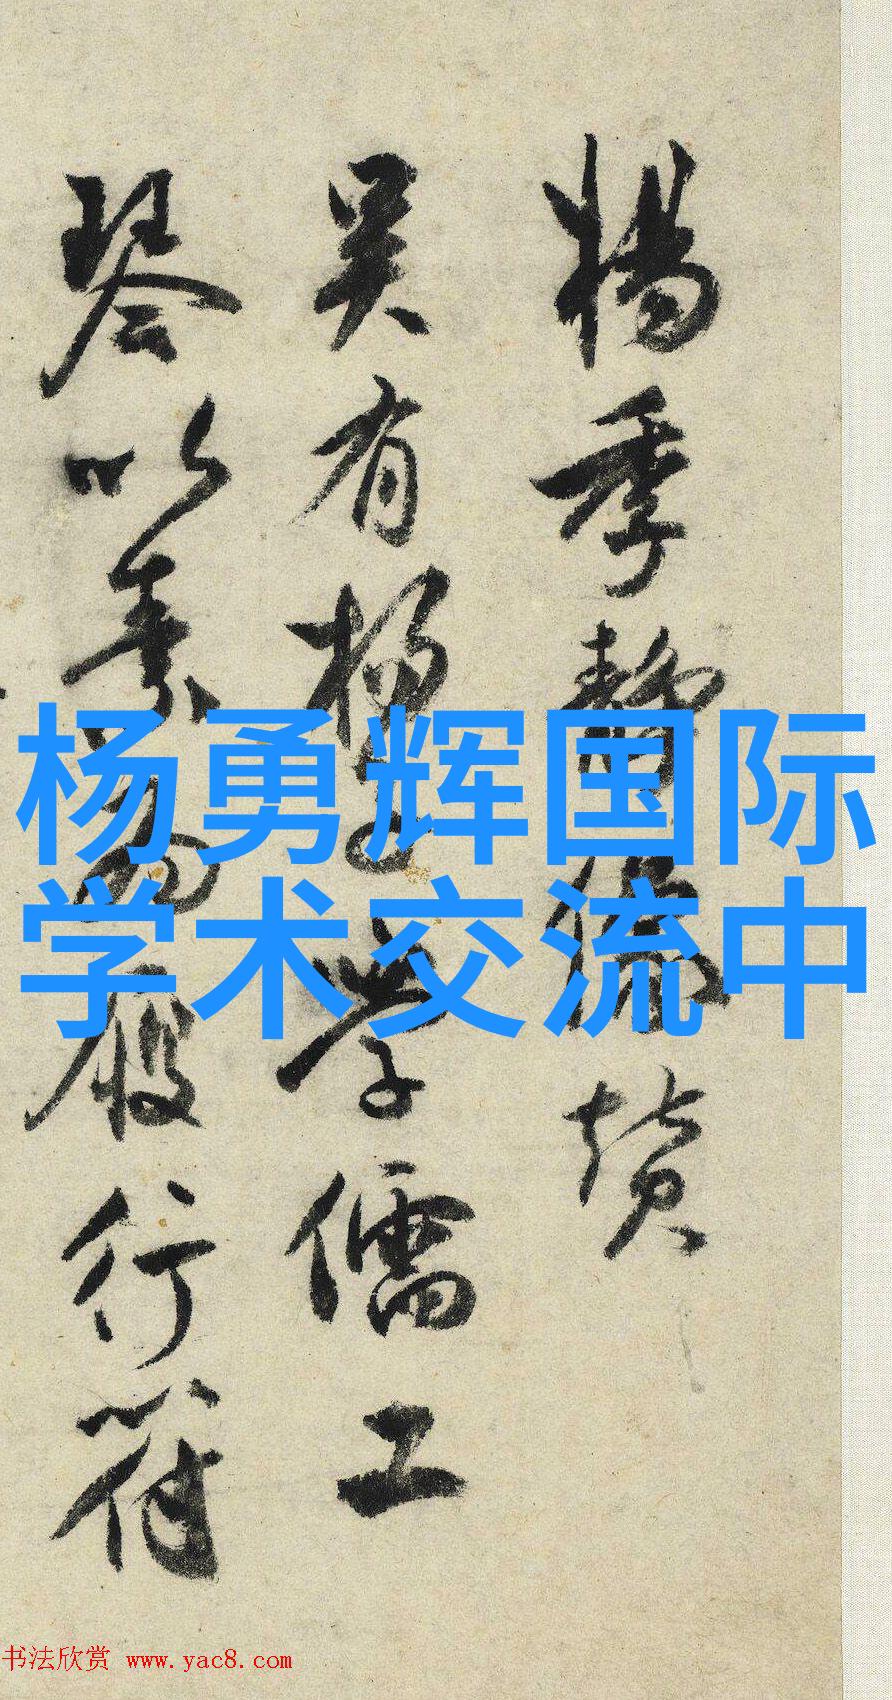 楊季靜像贊
吳有楊子學儒工
琴以為履行符
杨勇辉国际
学术交流中
书法欣赏 www.yac8.com